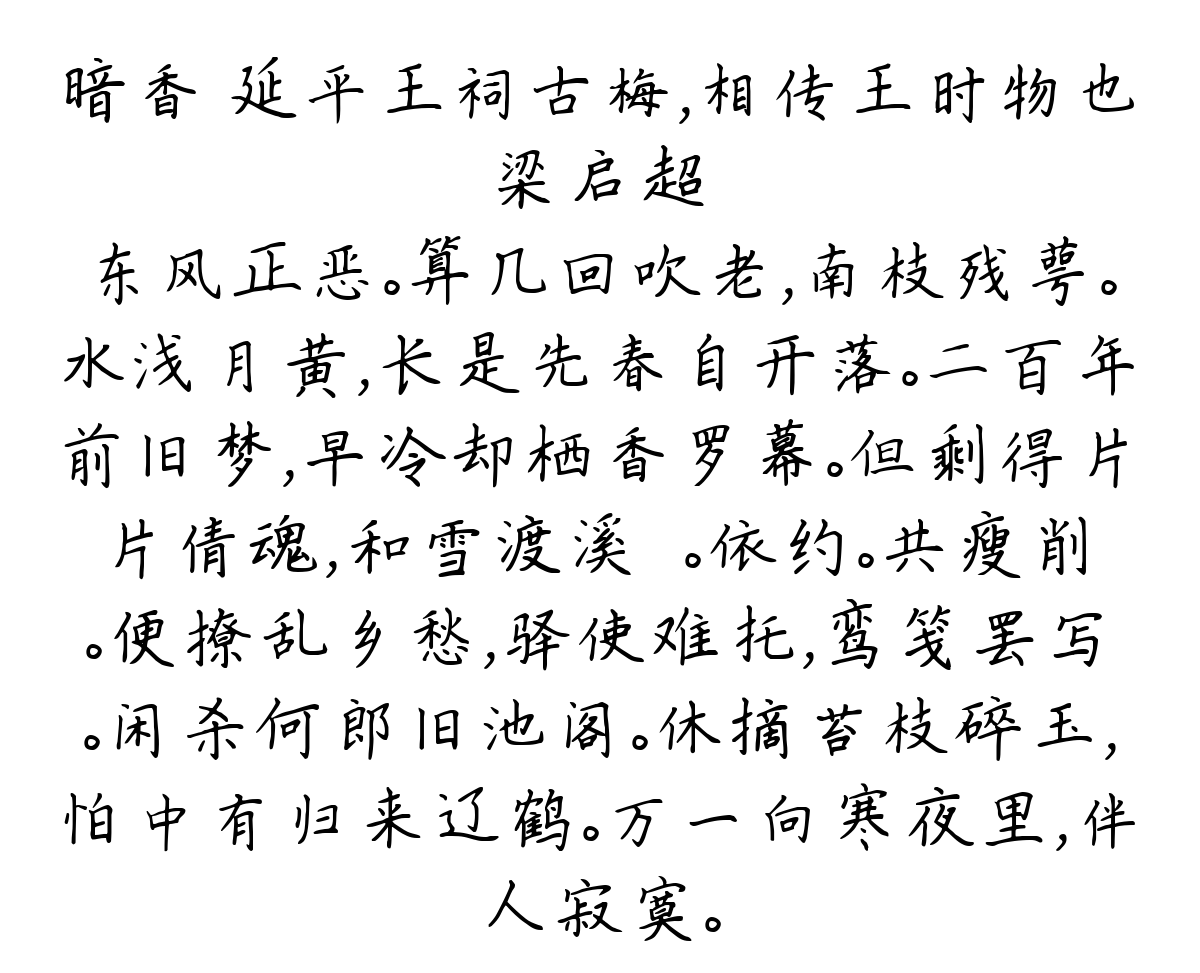 暗香 延平王祠古梅,相传王时物也
梁启超
东风正恶。算几回吹老,南枝残萼。
水浅月黄,长是先春自开落。二百年
前旧梦,早冷却栖香罗幕。但剩得片
片倩魂,和雪渡溪 。依约。共瘦削
。便撩乱乡愁,驿使难托,鸾笺罢写
。闲杀何郎旧池阁。休摘苔枝碎玉,
怕中有归来辽鹤。万一向寒夜里,伴
人寂寞。